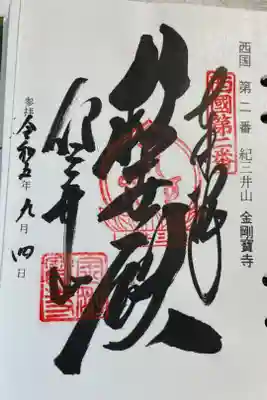 西国 第二番 紀三井山 金剛寶寺
西國第二番
奉拝
救世殿
紀三井山
参拝 令和五年 九月 四日